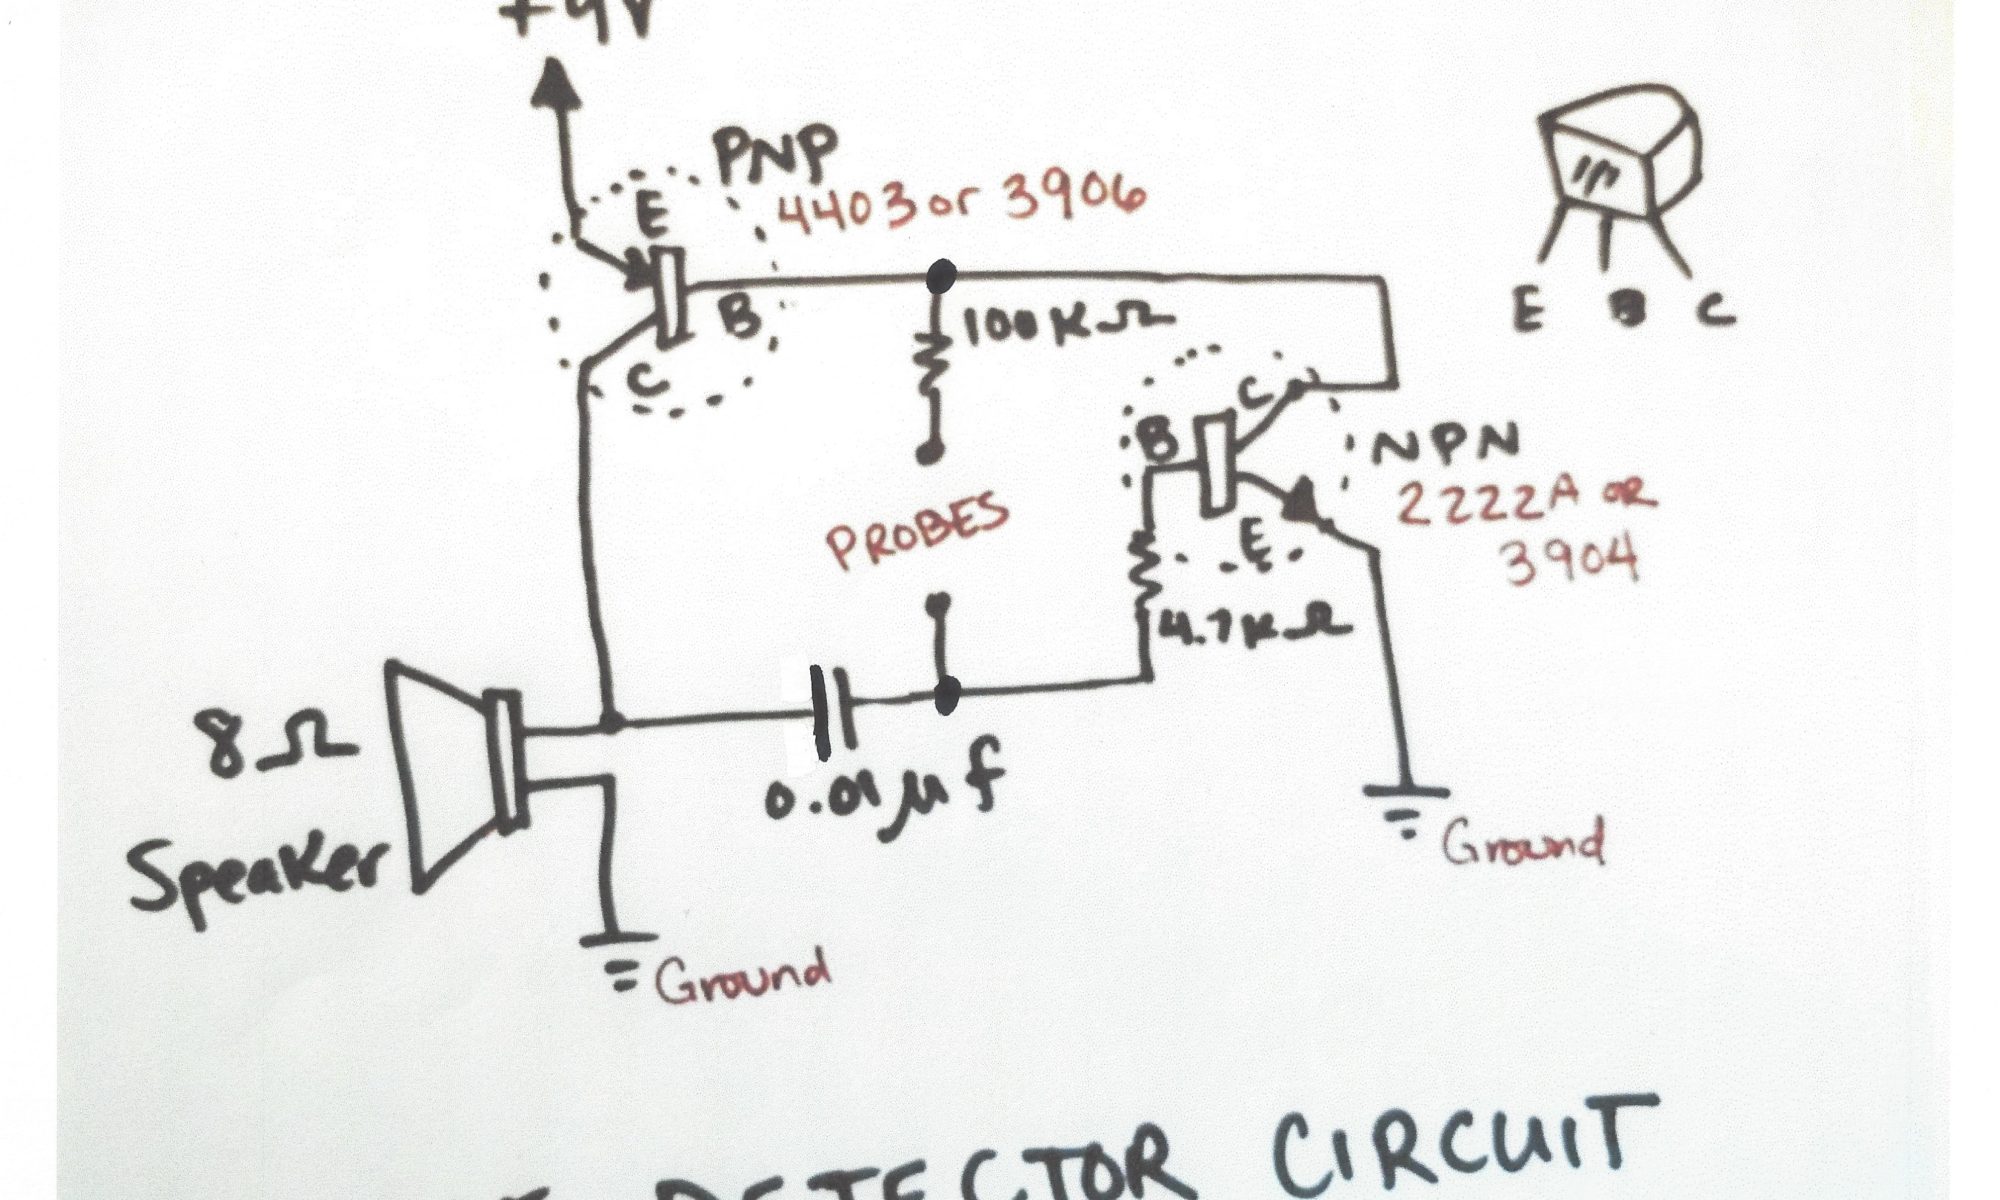 +9V
PNP
4403 or 3906
E
B
C
100KΩ
E B C
C
B
E
NPN
2222A OR
3904
PROBES
4.7KΩ
8Ω
Speaker
0.01µf
Ground
Ground
DETECTOR CIRCUIT